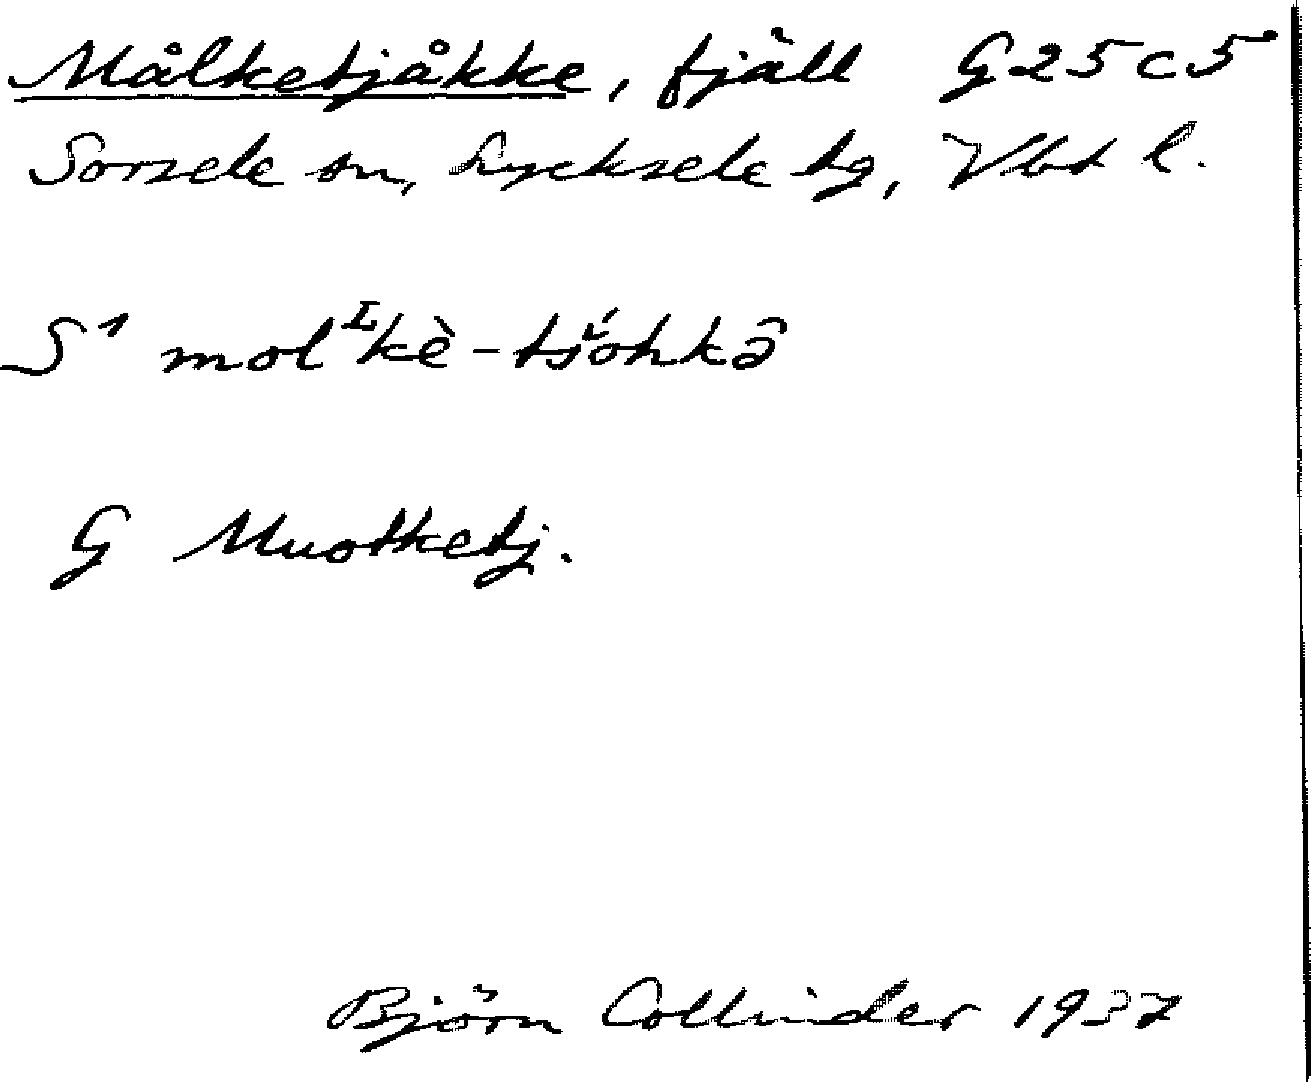 Målketjåkke, fjäll G25c5
Sorsele sn, Lycksele tg, Vbt l.
S¹ molᴸkè-tśi̯óhkâ
G Muotketj.
Björn Collinder 1937